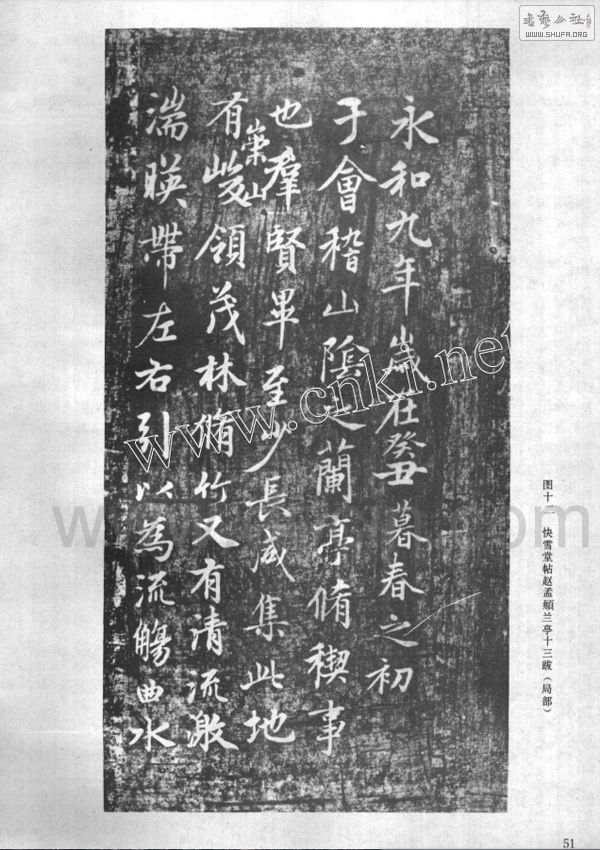 永和九年歲在癸丑暮春之初
于會稽山陰之蘭亭脩稧事
也羣賢畢至少長咸集此地
有崇山峻領茂林脩竹又有清流激
湍暎帶左右引以為流觴曲水
图十二 快雪堂帖赵孟頫兰亭十三跋（局部）
51
书艺公社
WWW.SHUFA.ORG
www.cnki.net